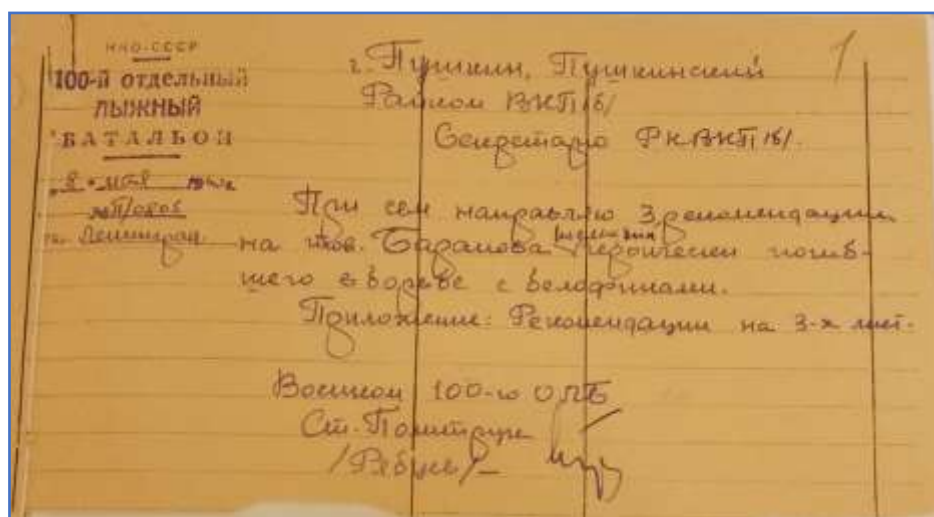 НКО-СССР
100-й отдельный
ЛЫЖНЫЙ
БАТАЛЬОН
"8" мая
Ленинград
1
г. Пушкин, Пушкинский
Райком ВКП/б/
Секретарю РКВКП/б/.
При сем направляю 3 рекомендации
на тов. Баранова героически погиб-
шего в борьбе с белофинами.
Приложение: Рекомендации на 3-х лист.
Военком 100-го ОЛБ
Ст. Политрук